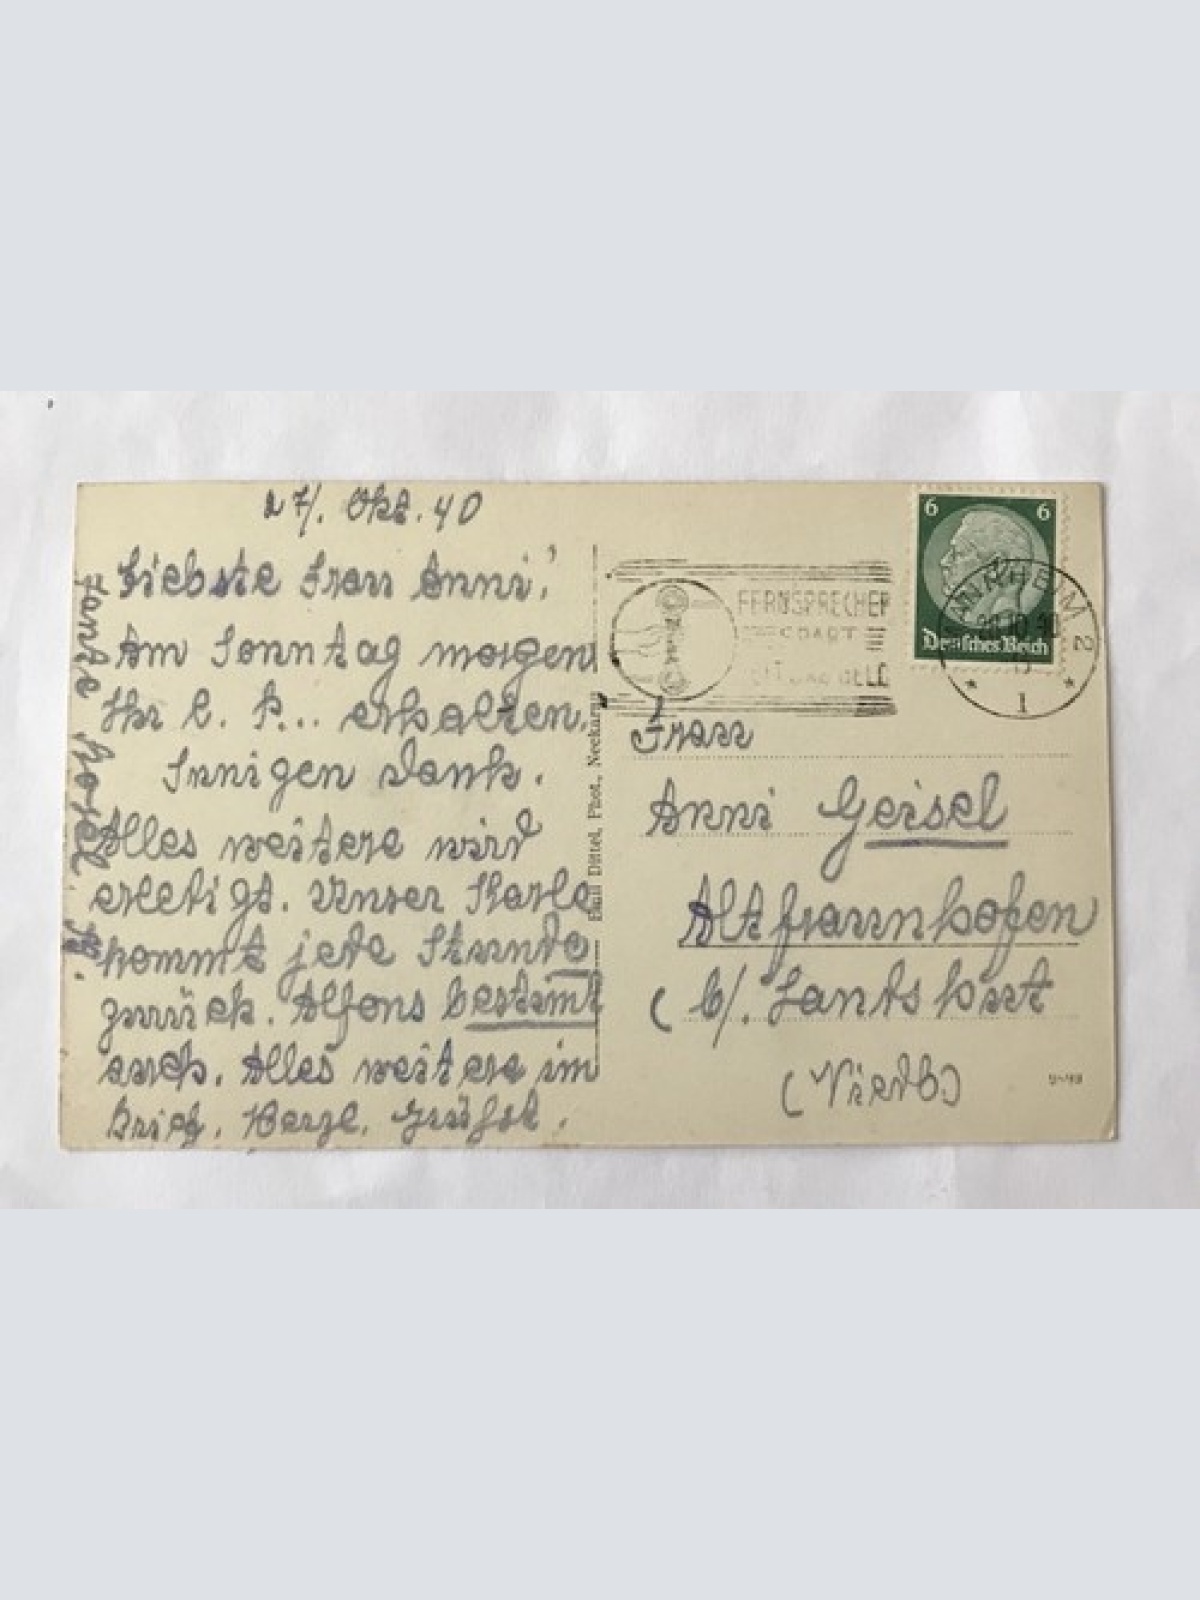 27/. Okt. 40
Liebste Frau Anni!
Am Sonntag morgen
Ihr l. P... erhalten.
Innigen Dank.
Alles weitere wird
erletigt. Unser Karle
kommt jede Stunde
zurück. Alfons bestimt
auch. Alles weitere im
Brief. Herzl. Grüße.
Tante
Emil Dittel, Phot., Neckarau
FERNSPRECHER
SPART
ZEIT UND GELD
6 6
Deutsches Reich
MANNHEIM 2
1
Frau
Anni Geisel
Altfraunhofen
( b/. Lantshut
(Nierdb)